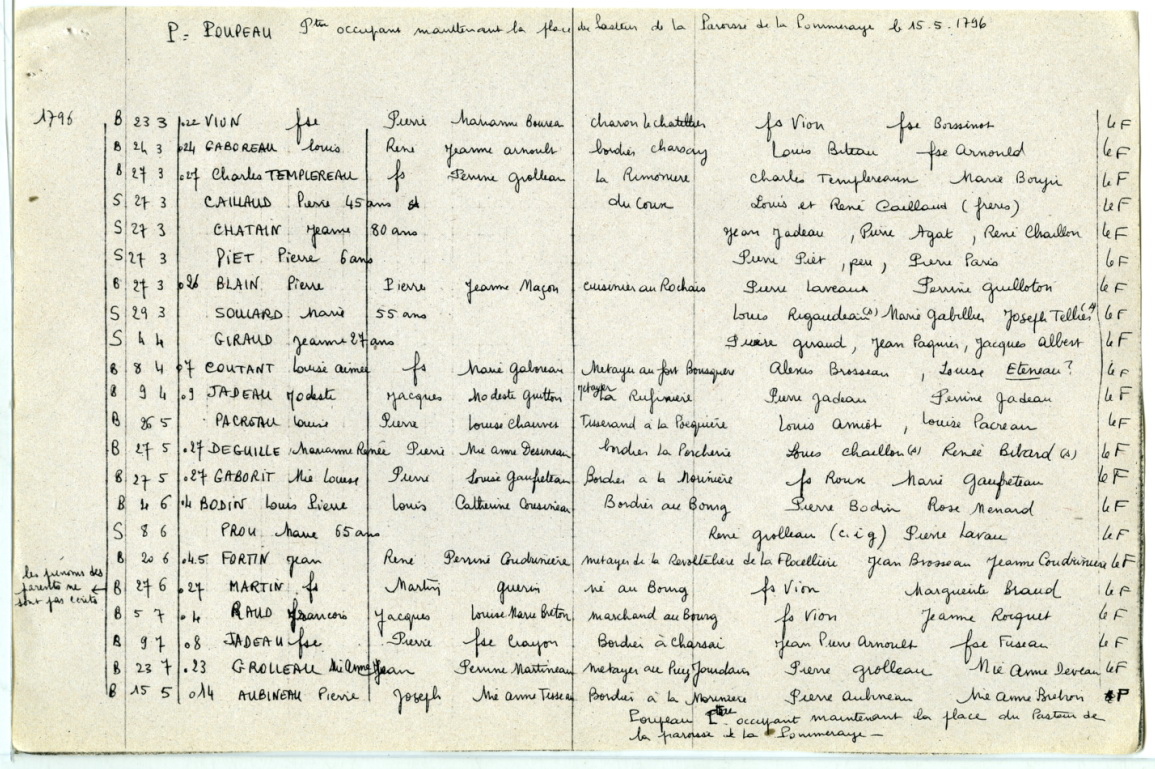 P = POUPEAU Ptre occupant maintenant la place du Pasteur de la Paroisse de la Pommeraye le 15.5.1796
1796 B 23 3 .22 VION fse Pierre Marianne Bourea charon le chatellier fs Vion fse Boissinot le F
B 24 3 .24 GABOREAU Louis René Jeanne arnoult bordier charsay Louis Biteau fse Arnould le F
B 27 3 .27 Charles TEMPLEREAU fs Perrine Grolleau La Rimoniere charles Templereaun Marie Boupii le F
S 27 3 CAILLAUD Pierre 45 ans du Coux Louis et René Caillaud (freres) le F
S 27 3 CHATAIN Jeanne 80 ans Jean Jadeau , Pierre Agat , René Chaillon le F
S 27 3 PIET Pierre 6 ans Pierre Piet , peu , Pierre Paris le F
B 27 3 .26 BLAIN Pierre Pierre Jeanne Maçon cuisinier au Rochais Pierre Laveaux Perrine guilloton le F
S 29 3 SOULARD Marie 55 ans Louis Rigaudeau (s) Marie Gabillier Joseph Tellier (s) le F
S 4 4 GIRAUD Jeanne 27 ans Pierre giraud, Jean Paquier, Jacques Albert le F
B 8 4 .7 COUTANT Louise Aimée fs Marie Gaboreau Metayer au fort Bousquere Alexis Brosseau , Louise Eteneau ? le F
B 9 4 .9 JADEAU Modeste Jacques Modeste Guitton metayer La Rufiniere Pierre Jadeau Perrine Jadeau le F
B 26 5 PACREAU Louise Pierre Louise Chauvet Tisserand à la Pocquière Louis Amiot , Louise Pacreau le F
B 27 5 .27 DEGUILLE Marianne Renée Pierre Mie anne Desineau bordier La Porcherie Louis chaillon (s) Renée Bibard (s) le F
B 27 5 .27 GABORIT Mie Louise Pierre Louise Gaufreteau Bordier à la Morinière fs Roux Marie Gaufreteau le F
B 4 6 .4 BODIN Louis Pierre Louis Catherine Cousineau Bordier au Bourg Pierre Bodin Rose Menard le F
S 8 6 PROU Marie 65 ans René grolleau (c.i.g) Pierre Lavau le F
B 20 6 .4.5 FORTIN Jean René Perrine Coudriniere metayer de la Revolteliere de la Flocelliere Jean Brosseau Jeanne Coudriniere le F
les prénoms des parents ne sont pas écrits ← B 27 6 .27 MARTIN fs Martin guerin né au Bourg fs Vion Marguerite Braud le F
B 5 7 .4 RAUD François Jacques Louise Marie Breton marchand au Bourg fs Vion Jeanne Rocquet le F
B 9 7 .8 JADEAU fse Pierre fse Crayon Bordier à Charsai Jean Pierre Arnoult fse Fuseau le F
B 23 7 .23 GROLLEAU Mie Anne Jean Perrine Martineau metayer au Puy Jourdain Pierre grolleau Mie Anne Deveau le F
B 15 5 .14 AUBINEAU Pierre Joseph Mie anne Fuseau Bordier à la Moriniere Pierre Aubineau Mie Anne Breton P
Poupeau Ptre occupant maintenant la place du Pasteur de
la paroisse de la Pommeraye —